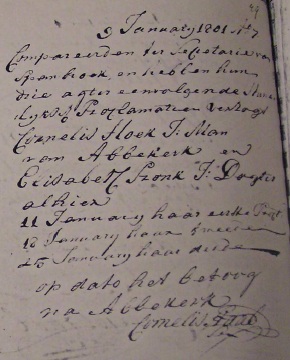 9 January 1801 N 7
Compareerden ter Secretarie van
Spanbroek, en hebben hun
drie agter eenvolgende Huwe
lykse Proclamatien versogt
Cornelis Hoek J: Man
van Abbekerk en
Elisabeth Pronk J: Dogter
alhier
11 January haar eerste Procl
18 January haar tweede
25 January haar derde
op dato het betoog
na Abbekerk
Cornelis